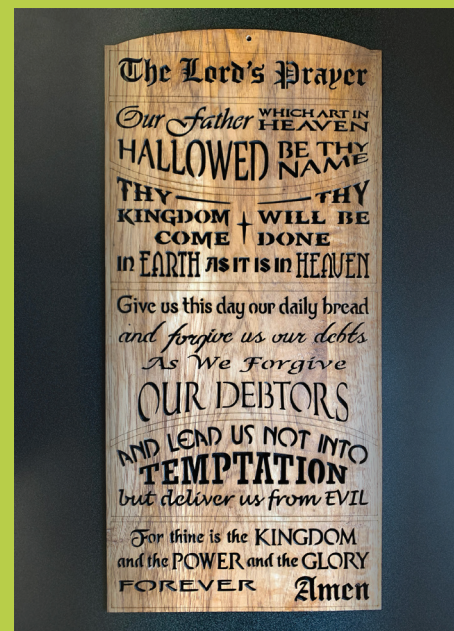 The Lord's Prayer
Our Father WHICH ART IN HEAVEN
HALLOWED BE THY NAME
THY THY
KINGDOM WILL BE
COME DONE
in EARTH AS IT IS in HEAVEN
Give us this day our daily bread
and forgive us our debts
As We Forgive
OUR DEBTORS
AND LEAD US NOT INTO
TEMPTATION
but deliver us from EVIL
For thine is the KINGDOM
and the POWER and the GLORY
FOREVER Amen